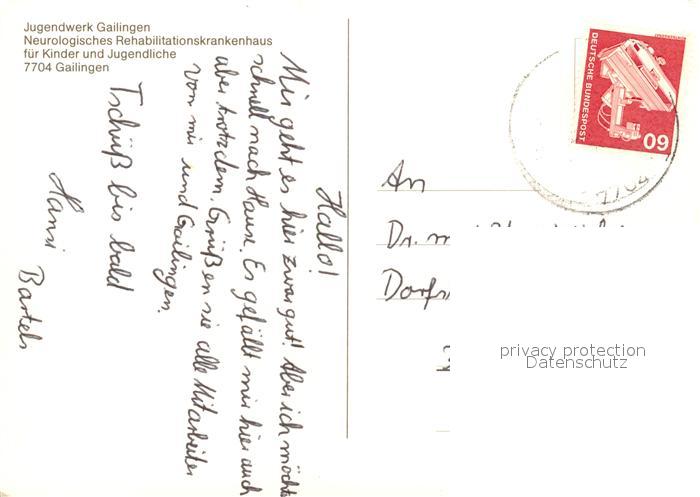 Jugendwerk Gailingen
Neurologisches Rehabilitationskrankenhaus
für Kinder und Jugendliche
7704 Gailingen
Hallo!
Mir geht es hier zwar gut! Aber ich möcht
schnell nach Hause. Es gefällt mir hier auch
aber trotzdem. Grüßen sie alle Mitarbeiter
von mir und Gailingen.
Tschüß bis bald
Hansi
Bartels
DEUTSCHE BUNDESPOST
60
7704
An
Dr. m
Dorfs
privacy protection
Datenschutz